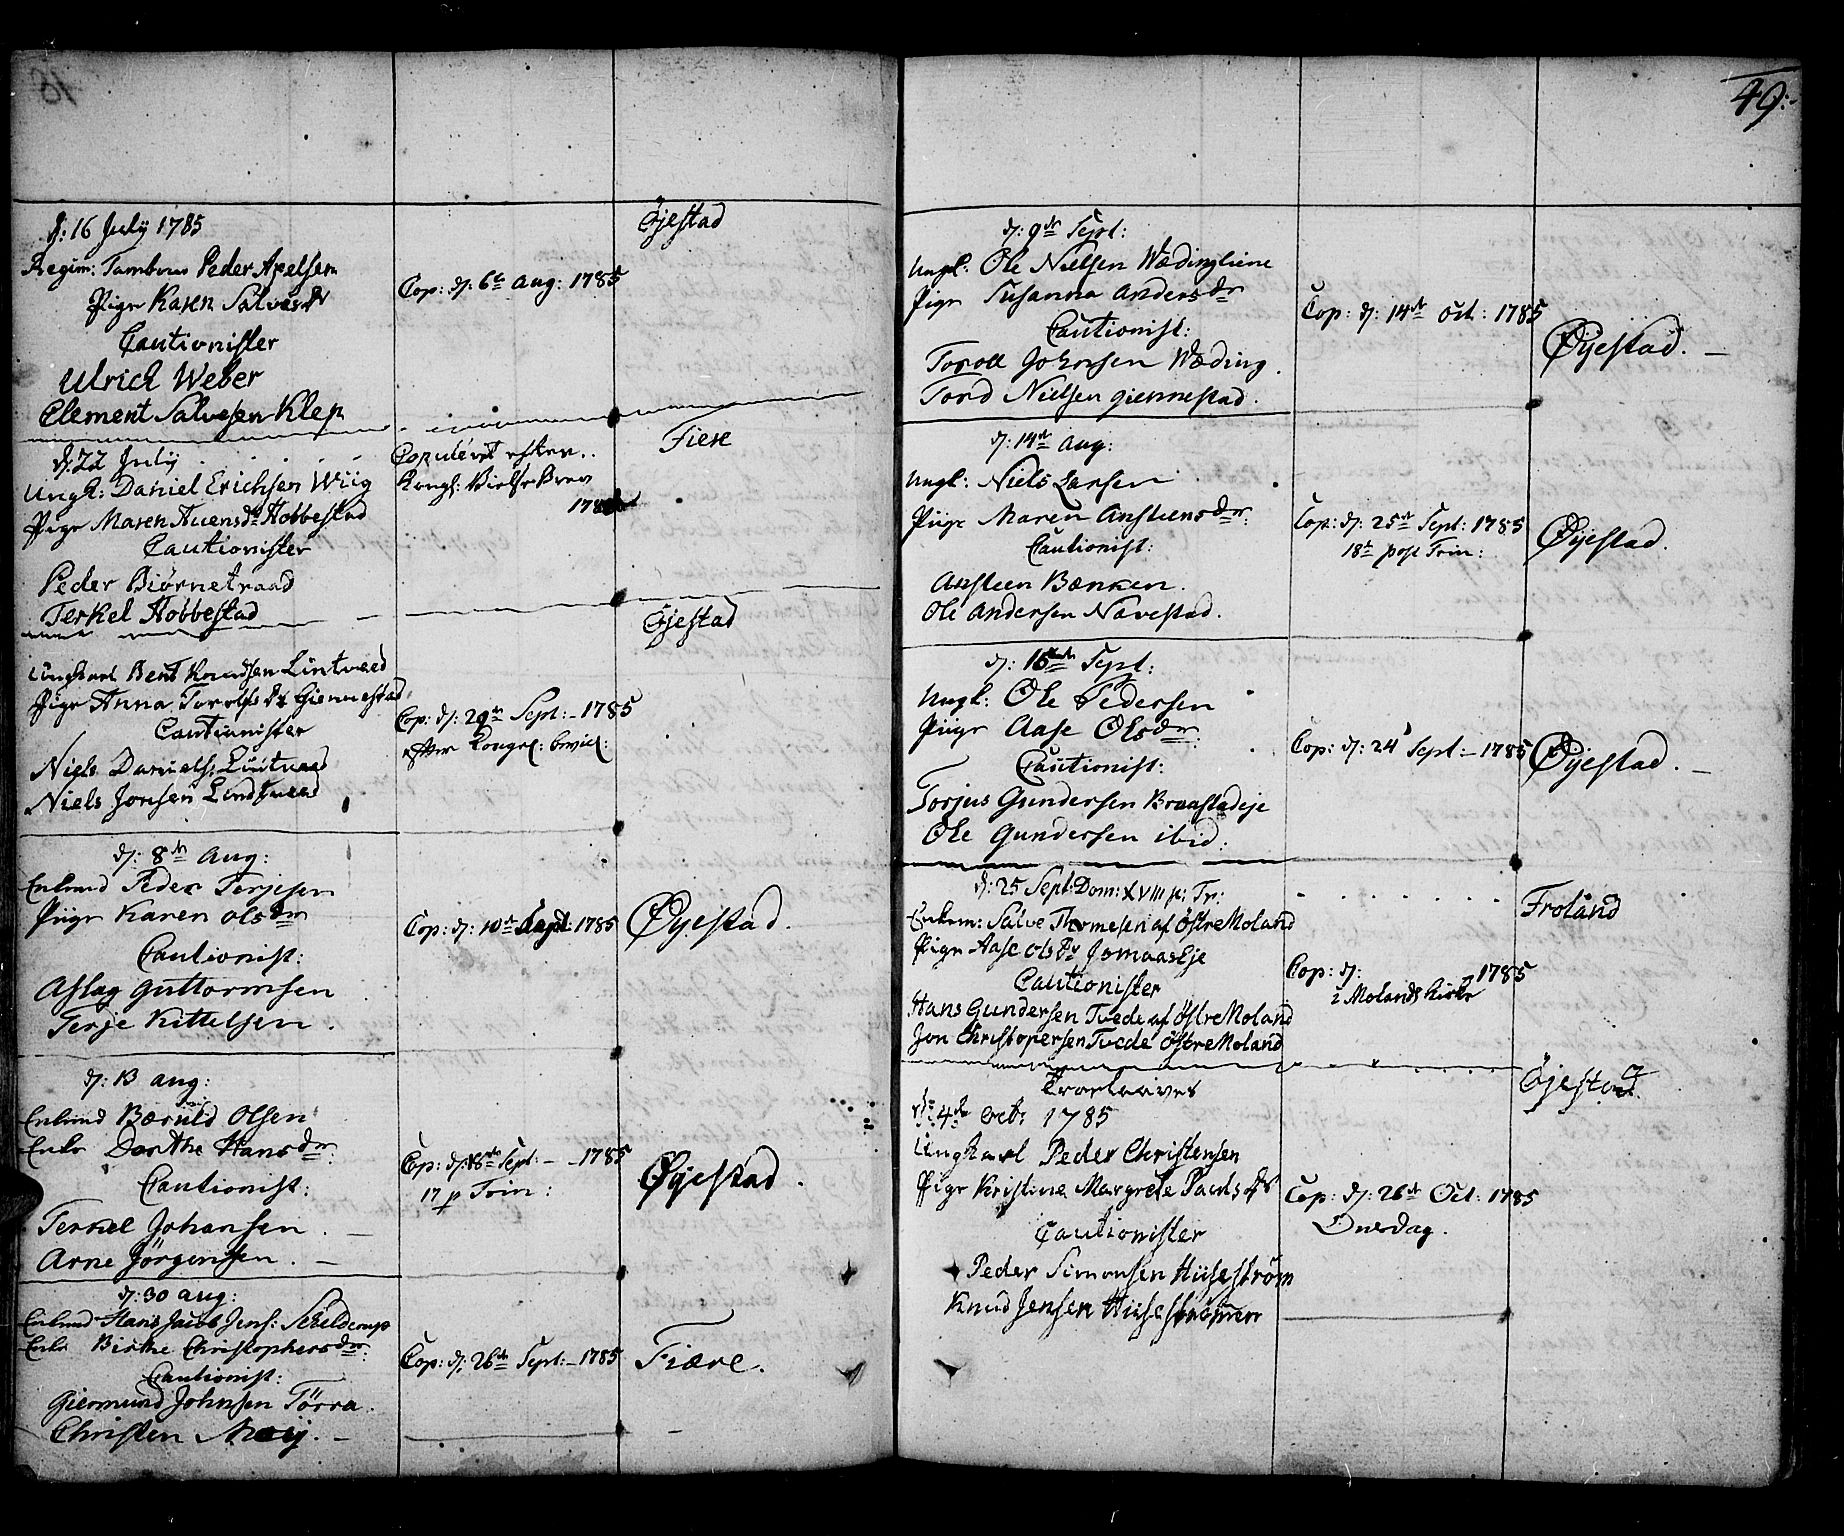 d: 16 July 1785
Regim: Tambour Peder Axelsen
Pige Karen Salvesdr
Cautionister
Ulrich Weber
Clement Salvesen Klep
Cop: d: 6te Aug: 1785
Øjestad
d: 22 July
Ungk: Daniel Erichsen Wiig
Pige Maren Auensdr Hobbestad
Cautionister
Peder Biørnetraad
Terkel Hobbestad
Copuleret efter
Kongl: Vielse Brev
Fiere
Ungkarl Bent Knudsen Lintveed
Pige Anna Torolfsdr Giennestad
Cautionister
Niels Daniels: Lintveed
Niels Jonsen Lindtveed
Cop: d: 29de Sept: 1785
efter Kongel: bevil:
Øjestad
d: 8de Aug:
Enkemd Peder Terjesen
Piige Karen Olsdr
Cautionist:
Aslag Guttormsen
Terje Kittelsen.
Cop: d: 10de Sept: 1785
Øyestad.
d: 13 Aug:
Enkemd Bæruld Olsen
Enke Dorthe Hansdr
Cautionist:
Terkel Johansen. —
Arne Jörgensen. —
Cop: d: 18de Sept: — 1785
17 p Trin:
Øyestad.
d: 30 Aug:
Enkemd Hans Jacob Jens: Schelderup
Enke Birthe Christophersdr:
Cautionist:
Giermund Johnsen Törra.
Christen Moÿ. —
Cop: d: 26de Sept: — 1785
Fiære.
49:
d: 9de Sept:
Ungk: Ole Nielsen Wædingliene
Pige Susanna Andersdr
Cautionist:
Toroll Johnsen Wæding.
Tord Nielsen Giennestad.
Cop: d: 14de Oct: 1785
Øyestad. —
d: 14de Aug:
Ungk: Niels Larsen
Piige Maren Anstensdr:
Cautionist:
Ansteen Bænken.
Ole Andersen Navestad.
Cop: d: 25de Sept: 1785
18de post Trin:
Øyestad.
d: 16de Sept:
Ungk: Ole Pedersen
Piige Aase Olsdr
Cautionist:
Torjus Gundersen Braastadeje
Ole Gundersen ibid:
Cop: d: 24 Sept: — 1785
Øyestad. —
d: 25 Sept: Dom: XVIII p: Tr:
Enkem: Salve Thomesen af Østre Moland
Pige Aase Olsdr Jomaas Eje
Cautionister
Hans Gundersen Tvede af Østre Moland
Jon Christopersen Tvede Østre Moland
Cop: d: 1785
i Molands Kirke
Froland
Trorlovet
d: 4de Octb: 1785
Ungkarl Peder Christensen
Pige Kristine Margrete Paulsdr
Cautionister
Peder Simonsen Hüsestrøm
Knud Jensen
Cop: d: 26de Oct: 1785
Onsdag.
Øjestad